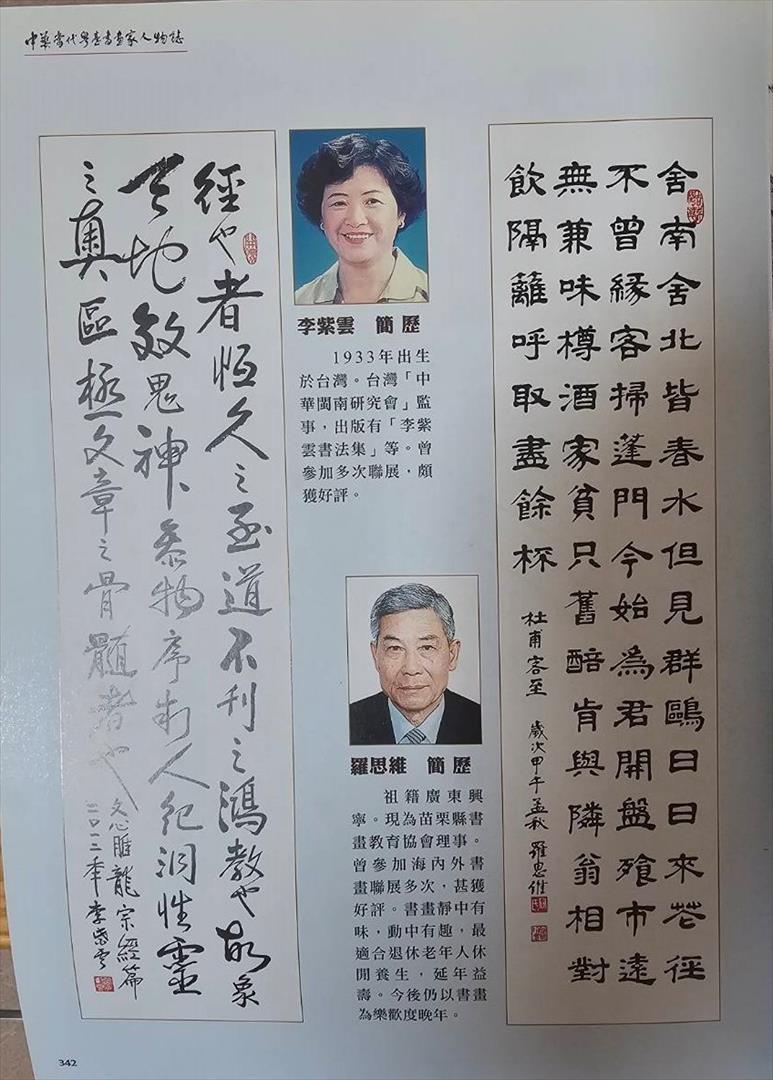 中華當代書畫家人物誌
經也者恆久之至道不刊之鴻教也故象
天地效鬼神參物序制人紀洞性靈
之奧區極文章之骨髓者也
文心雕龍宗經篇
二〇一二年李紫雲
李紫雲 簡歷
1933年出生
於台灣。台灣「中
華閩南研究會」監
事，出版有「李紫
雲書法集」等。曾
參加多次聯展，頗
獲好評。
羅思維 簡歷
祖籍廣東興
寧。現為苗栗縣書
畫教育協會理事。
曾參加海內外書
畫聯展多次，甚獲
好評。書畫靜中有
味，動中有趣，最
適合退休老年人休
閒養生，延年益
壽。今後仍以書畫
為樂歡度晚年。
舍南舍北皆春水但見群鷗日日來花徑
不曾緣客掃蓬門今始為君開盤飱市遠
無兼味樽酒家貧只舊醅肯與隣翁相對
飲隔籬呼取盡餘杯
杜甫客至 歲次甲午孟秋 羅思維
342